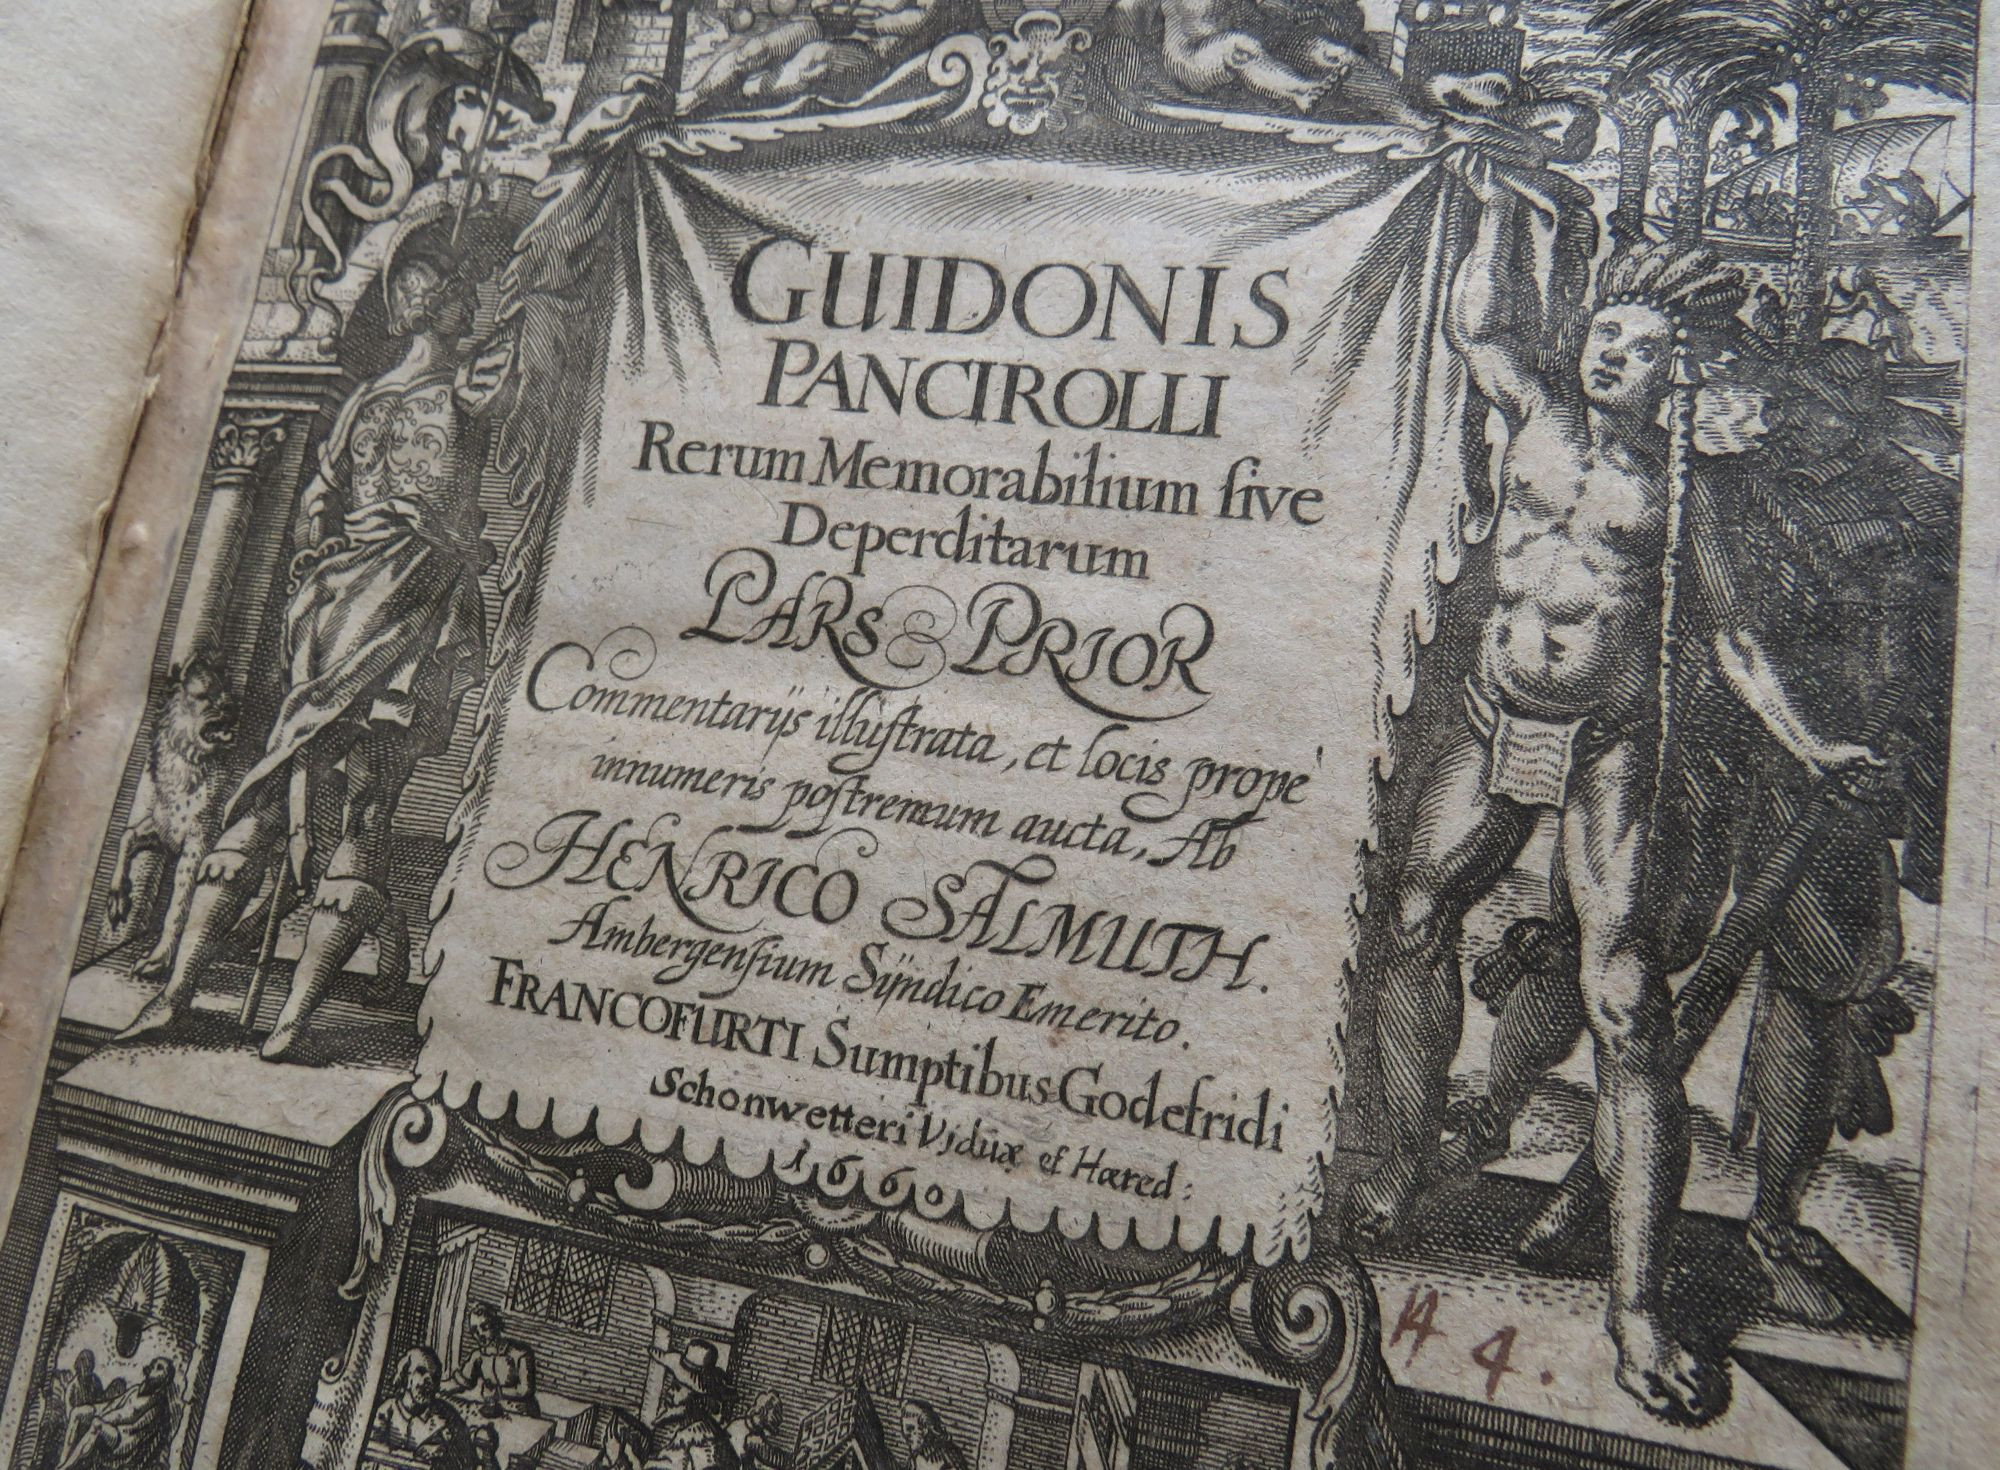 GUIDONIS
PANCIROLLI
Rerum Memorabilium ſive
Deperditarum
PARS PRIOR
Commentarijs illuſtrata, et locis propè
innumeris poſtremum aucta, Ab
HENRICO SALMUTH.
Ambergenſium Sÿndico Emerito.
FRANCOFURTI Sumptibus Godefridi
Schonwetteri Viduæ et Hæred:
1660
4.